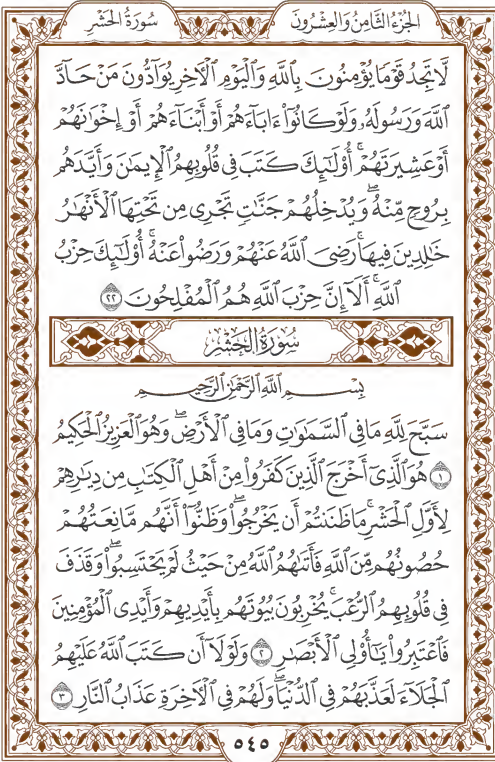 سُورَةُ الحَشْرِ
الجُزْءُ الثَّامِنُ وَالعِشْرُونَ
لَّا تَجِدُ قَوْمًا يُؤْمِنُونَ بِٱللَّهِ وَٱلْيَوْمِ ٱلْأٓخِرِ يُوَآدُّونَ مَنْ حَآدَّ
ٱللَّهَ وَرَسُولَهُۥ وَلَوْ كَانُوٓا۟ ءَابَآءَهُمْ أَوْ أَبْنَآءَهُمْ أَوْ إِخْوَٰنَهُمْ
أَوْ عَشِيرَتَهُمْ ۚ أُو۟لَٰٓئِكَ كَتَبَ فِى قُلُوبِهِمُ ٱلْإِيمَٰنَ وَأَيَّدَهُم
بِرُوحٍ مِّنْهُ ۖ وَيُدْخِلُهُمْ جَنَّٰتٍ تَجْرِى مِن تَحْتِهَا ٱلْأَنْهَٰرُ
خَٰلِدِينَ فِيهَا ۚ رَضِىَ ٱللَّهُ عَنْهُمْ وَرَضُوا۟ عَنْهُ ۚ أُو۟لَٰٓئِكَ حِزْبُ
ٱللَّهِ ۚ أَلَآ إِنَّ حِزْبَ ٱللَّهِ هُمُ ٱلْمُفْلِحُونَ ٢٢
سُورَةُ الحَشْرِ
بِسْمِ ٱللَّهِ ٱلرَّحْمَٰنِ ٱلرَّحِيمِ
سَبَّحَ لِلَّهِ مَا فِى ٱلسَّمَٰوَٰتِ وَمَا فِى ٱلْأَرْضِ ۖ وَهُوَ ٱلْعَزِيزُ ٱلْحَكِيمُ
١ هُوَ ٱلَّذِىٓ أَخْرَجَ ٱلَّذِينَ كَفَرُوا۟ مِنْ أَهْلِ ٱلْكِتَٰبِ مِن دِيَٰرِهِمْ
لِأَوَّلِ ٱلْحَشْرِ ۚ مَا ظَنَنتُمْ أَن يَخْرُجُوا۟ ۖ وَظَنُّوٓا۟ أَنَّهُم مَّانِعَتُهُمْ
حُصُونُهُم مِّنَ ٱللَّهِ فَأَتَىٰهُمُ ٱللَّهُ مِنْ حَيْثُ لَمْ يَحْتَسِبُوا۟ ۖ وَقَذَفَ
فِى قُلُوبِهِمُ ٱلرُّعْبَ ۚ يُخْرِبُونَ بُيُوتَهُم بِأَيْدِيهِمْ وَأَيْدِى ٱلْمُؤْمِنِينَ
فَٱعْتَبِرُوا۟ يَٰٓأُو۟لِى ٱلْأَبْصَٰرِ ٢ وَلَوْلَآ أَن كَتَبَ ٱللَّهُ عَلَيْهِمُ
ٱلْجَلَآءَ لَعَذَّبَهُمْ فِى ٱلدُّنْيَا ۖ وَلَهُمْ فِى ٱلْأٓخِرَةِ عَذَابُ ٱلنَّارِ ٣
٥٤٥